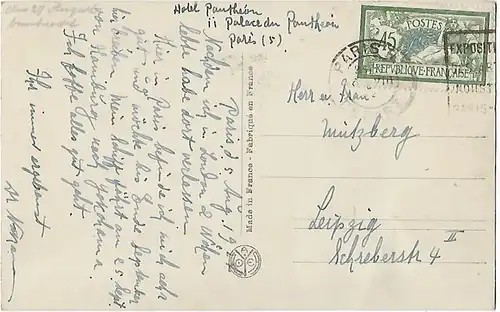 Hotel Panthéon
11 Place du Panthéon
Paris (5)
Paris d. 5 Aug. 19
Nachdem ich in London 2 Wochen
lebte habe dort verlassen
Hier in Paris befinde ich mich sehr
gut und möchte bis Ende September
bleiben. Mein Schiff fährt am 25 Sept.
von Hamburg nach Yokohama.
Ich hoffe alles gut geht.
Ihr immer ergebenst
Made in France - Fabriqué en France
POSTES
45
REPUBLIQUE FRANÇAISE
PARIS
EXPOSIT
Herrn u. Frau
Mützberg
Leipzig
Schreberstr 4 II